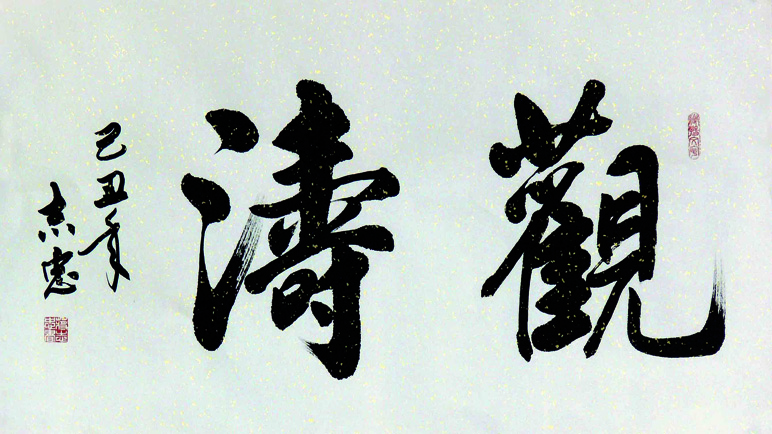 觀濤
己丑年
志忠